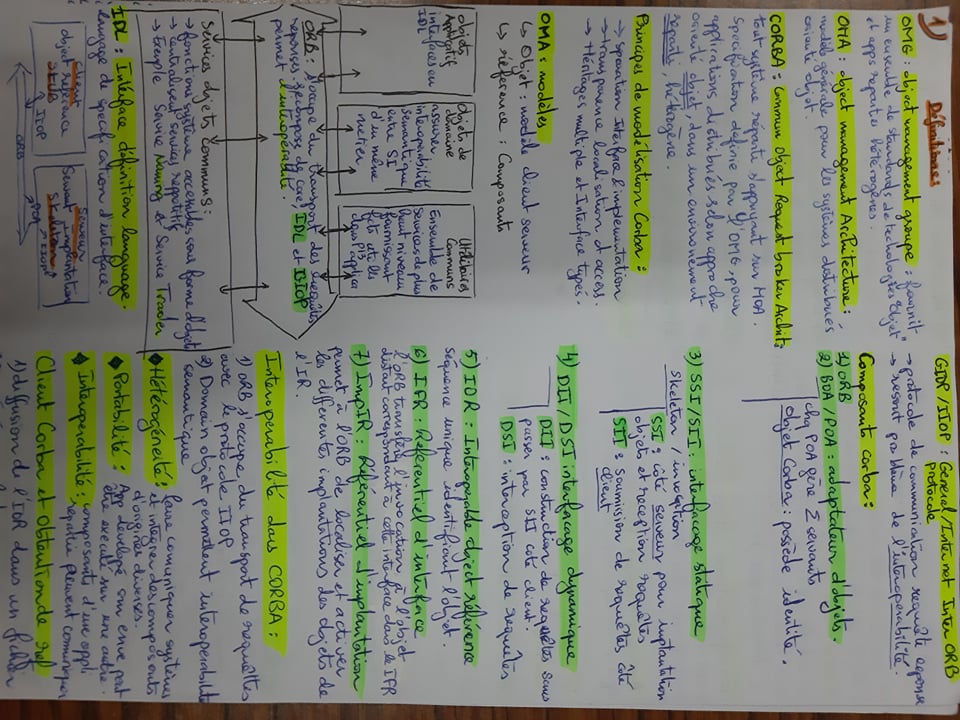 1) Définitions
OMG : object management groupe : fournit
un ensemble de standards de technologies "Objet"
et apps réparties hétérogènes.
OMA : object management Architecture :
modèle générale pour les systèmes distribués
orienté objet.
CORBA : Commun Object Request broker Archits
tout système réparti s'appuyant sur
Spécification définie par l'OMG, pour
applications distribuées selon approche
orienté objet, dans un environnement
réparti, hétérogène.
Principes de modélisation Corba :
→ séparation Interface & implémentation
→ transparence localisation et accès
→ Héritages multiple et Interface types.
OMA : modèles
↳ Objet : modèle client serveur
↳ référence : Composants
Objets
Applicatif
interfaces en
IDL
Objets de
domaine
assurent
interopérabilité
Sémantique
entre SI
d'un même
métier
Utilitaires
Communs
Ensemble de
Services de plus
haut niveau
fournissant
fcts utiles
dans plrs
applica
ORB : s'occupe du transport des requêtes
reponses grâce IDL et IIOP
permet l'interopérable.
Services objets communs :
→ fonctions système accessibles sous forme d'objet
→ centralisent services répétitifs
→ Exemple Service Naming et Service Trader
IDL : Interface définition language.
langage de spécification d'interface.
Client
object référence
Stubs
Serveur
Serveur implantation
Skeleton
POA
IIOP
ORB
GIOP/IIOP : General/Internet Inter ORB
protocole
→ protocole de communication requête reponse
→ resout problème de l'interopérabilité.
Composants corba :
1) ORB
2) BOA/POA : adaptateur d'objets.
chq POA gère Σ servants
Objet Corba : possède identité,
3) SSI/SII : interfaçage statique
skeleton / invocation
SSI : côté serveur pour implantation
objets et reception requêtes
SII : soumission de requêtes côté
client
4) DII/DSI interfaçage dynamique
DII : construction de requêtes sans
passer par SII côté client.
DSI : interception de requêtes
5) IOR : Interoperable object référence
séquence unique identifiant l'objet.
6) IFR : Référentiel d'interface
l'ORB transfère l'invocation à l'objet
distant correspondant à cette interface dans le IFR
7) ImpIR : Référentiel d'implantation
permet à l'ORB de localiser et activer
les différentes implantations des objets de
l'IR.
Interoperabilité dans CORBA :
1) ORB s'occupe du transport de requêtes
avec le protocole IIOP
2) Domain objet permettent interoperabilité
semantique
◆ Hétérogéneité : faire communiquer systèmes
et intégrer des composants
d'origines diverses.
◆ Portabilité : App developpé sm envire peut
être executé sur une autre.
◆ Interoperabilité : composants d'une appli
repartie peuvent communiquer
Client Corba et obtention de ref
1) diffusion de l'IOR dans un fichier